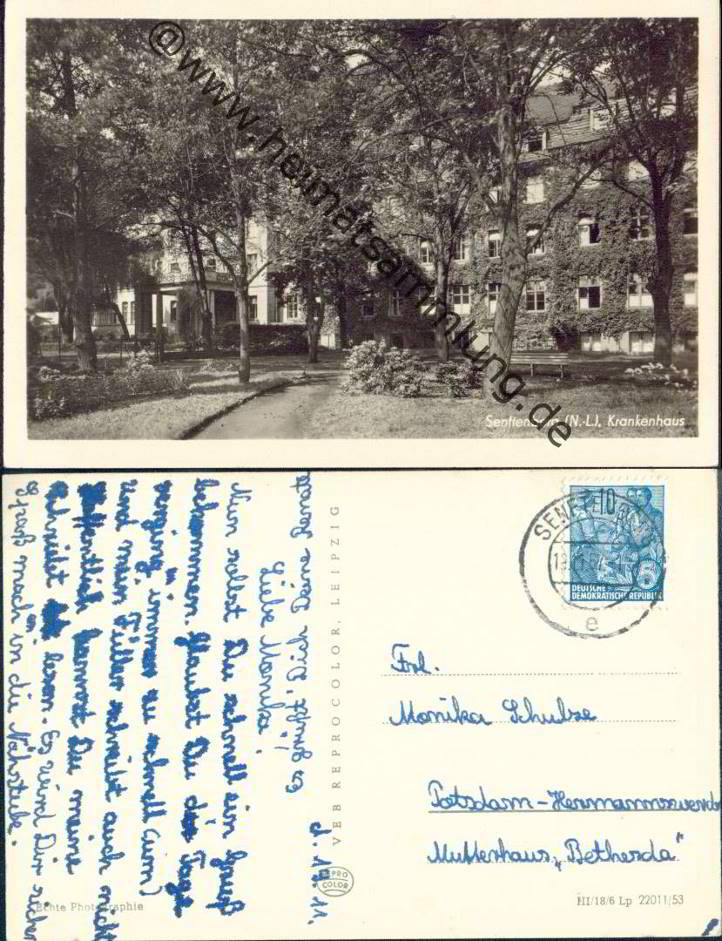 @www.heimatsammlung.de
Senftenberg (N.-L.), Krankenhaus
SENFTENBERG
10
e
DEUTSCHE
DEMOKRATISCHE REPUBLIK
Frl.
Monika Schulze
Potsdam-Hermannswerder
Mutterhaus „Bethesda"
VEB REPROCOLOR, LEIPZIG
REPRO
COLOR
III/18/6 Lp 22011/53
Echte Photographie
d. 19. 11.
Liebe Monika!
Nun sollst Du schnell ein Gruß
bekommen. Glaubst Du die Tage
vergingen immer zu schnell (um)
und mein Füller schreibt auch nicht
Hoffentlich kannst Du meine
lesen. Es wird Dir sicher
Spaß machen in die Nähstube.
Dich Deine Renate